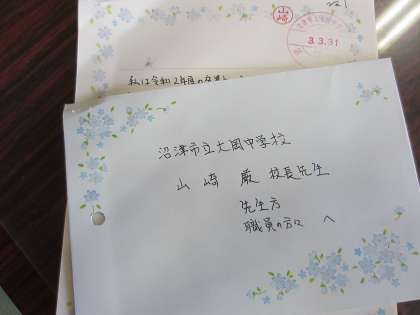 山崎
3.3.31
私は令和2年度の卒業
沼津市立大岡中学校
山崎 厳 校長先生
先生方
職員の方々 へ